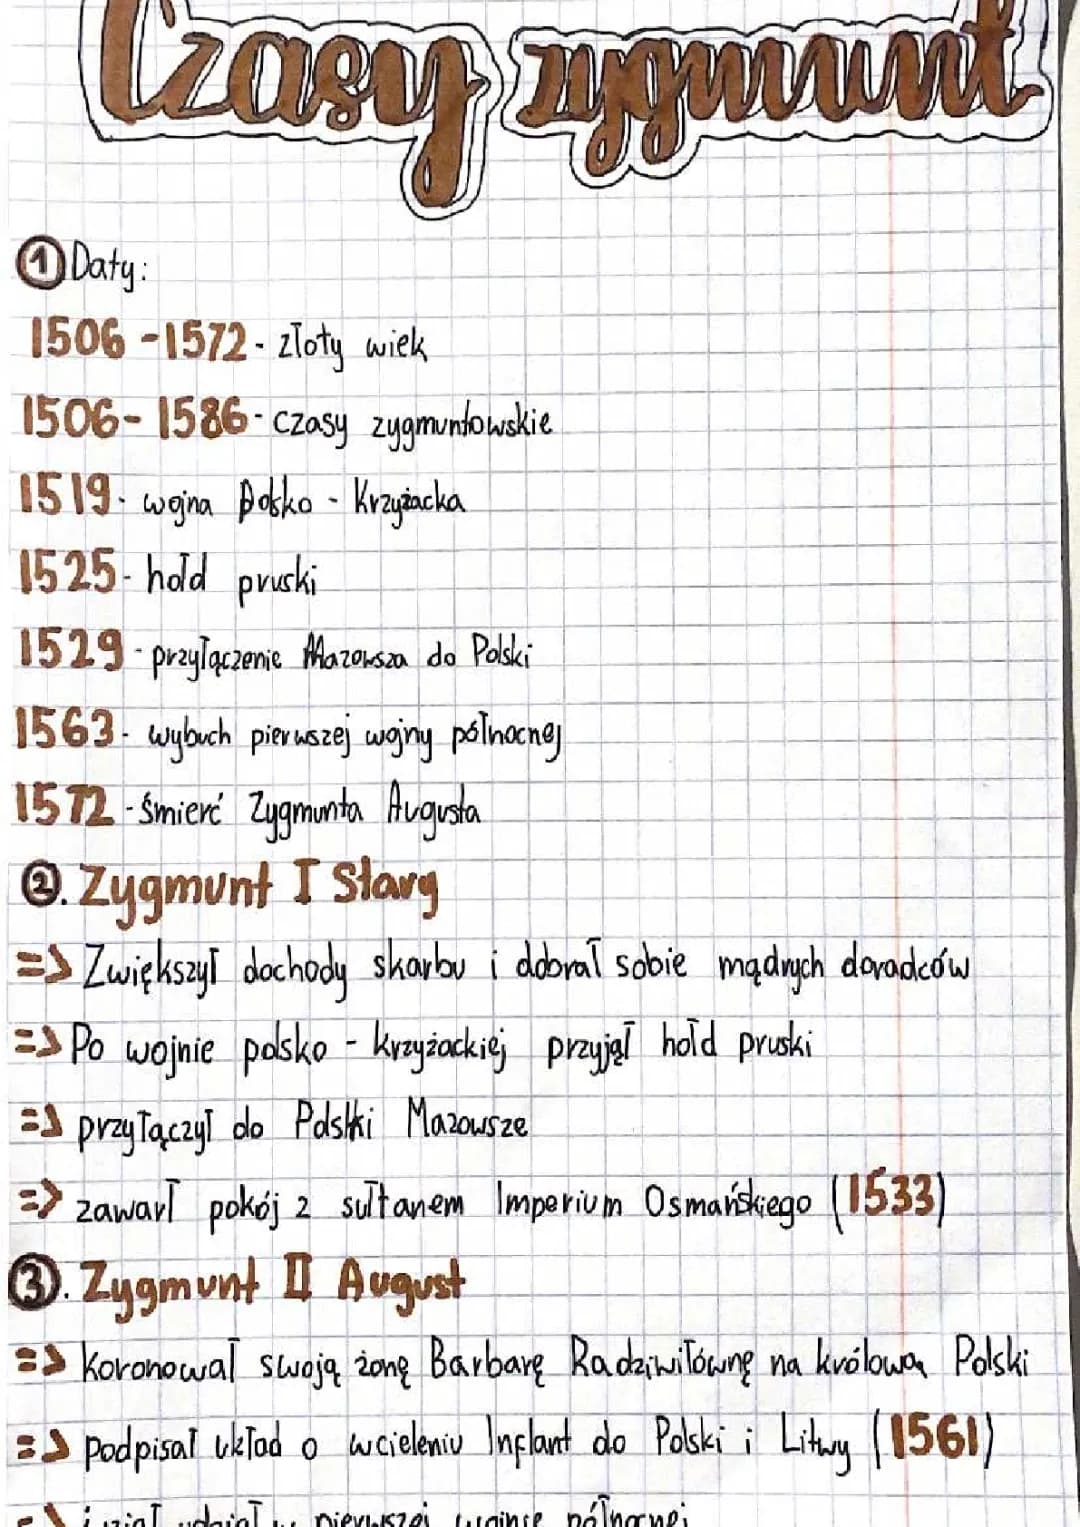 Czasy zygmunt
① Daty:
1506 - 1572 - złoty wiek
1506 - 1586 - czasy zygmuntowskie
1519 - wojna Polsko - Krzyżacka
1525 - hołd pruski
1529 - przyłączenie Mazowsza do Polski
1563 - wybuch pierwszej wojny północnej
1572 - śmierć Zygmunta Augusta
②. Zygmunt I Stary
=> Zwiększył dochody skarbu i dobrał sobie mądrych doradców
=> Po wojnie polsko - krzyżackiej przyjął hołd pruski
=> przyłączył do Polski Mazowsze
=> zawarł pokój z sułtanem Imperium Osmańskiego (1533)
③. Zygmunt II August
=> koronował swoją żonę Barbarę Radziwiłównę na królową Polski
=> podpisał układ o wcieleniu Inflant do Polski i Litwy (1561)
=> udział w pierwszej wojnie północnej